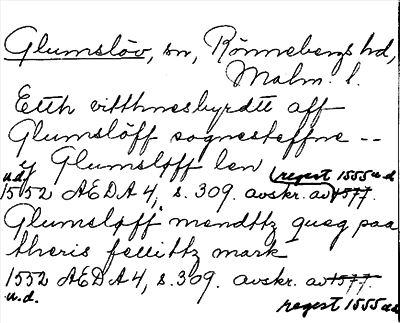 Glumslöv, sn, Rönnebergs hd,
Malm. l.
Etth vitthnesbyrdtt aff
Glumslöff sognesteffne --
y Glumsløff len (regest 1555 u.d
u.d.
1552 AEDA 4, s. 309. avskr. av 1577.
Glumsløff mendttz queg paa
theris fellittz mark
1552 AEDA 4, s. 309. avskr. av 1577.
u.d. regest 1555 u.d